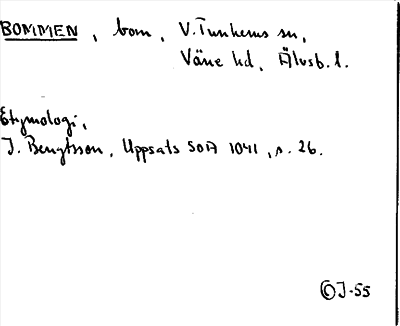 BOMMEN, bom, V. Tunhems sn,
Väne hd, Älvsb. l.
Etymologi,
J. Bengtsson, Uppsats SOA 1041, s. 26.
© J-55